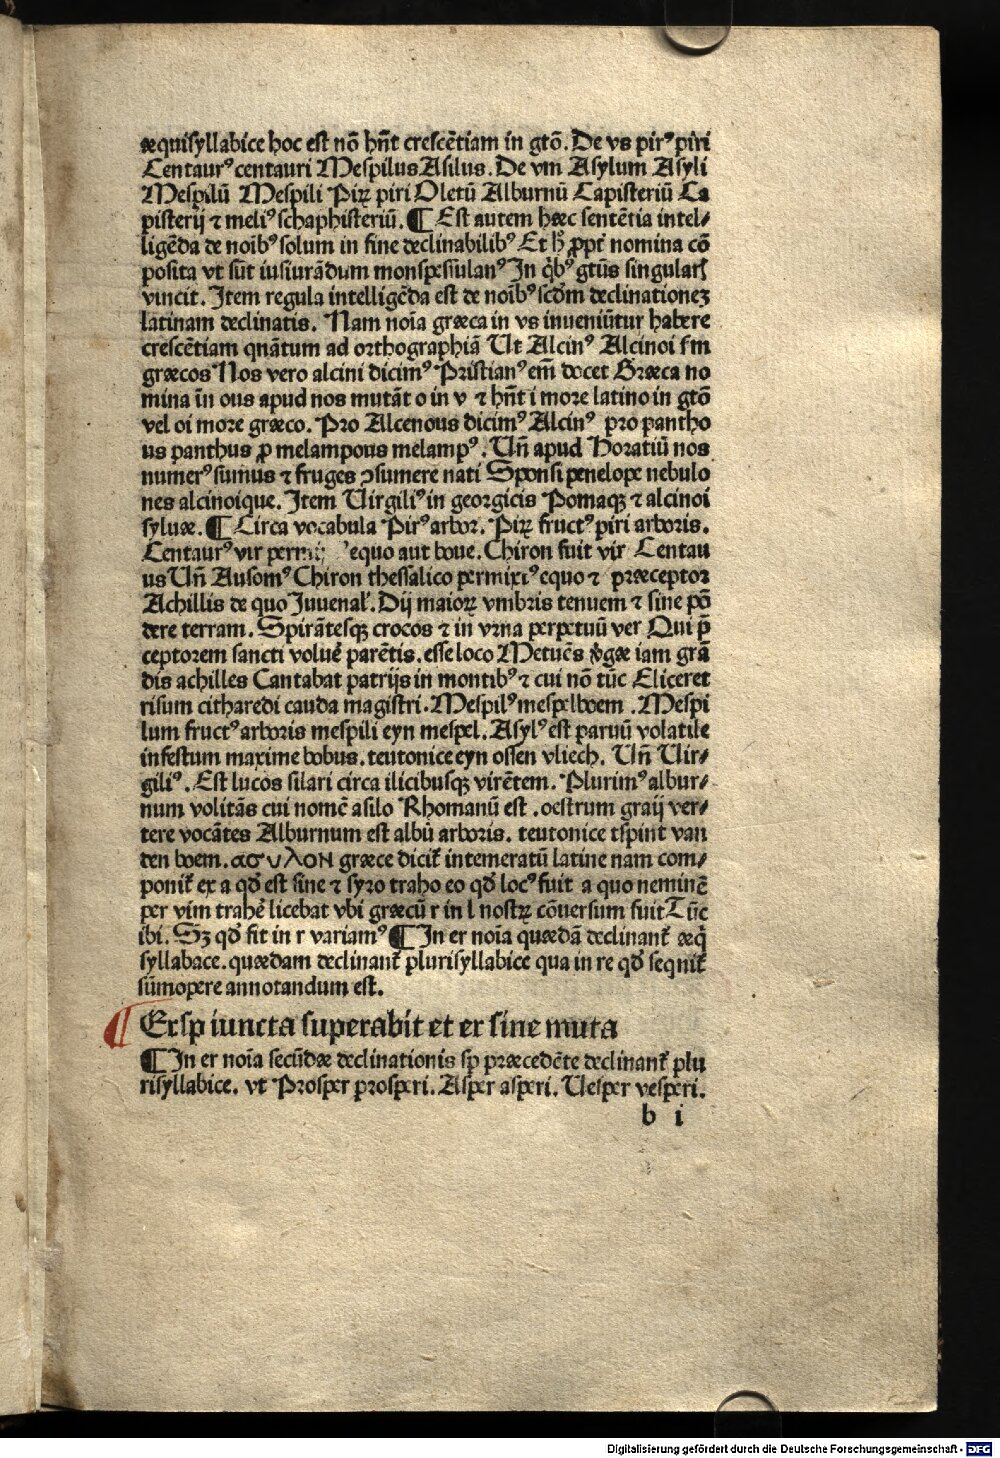 æquisyllabice hoc est nō hñt crescētiam in gtō. De vs pirꝰ piri
Centaurꝰ centauri Mespilus Asilus. De vm Asylum Asyli
Mespilū Mespili Piꝝ piri Oletū Alburnū Capisteriū Ca
pisterij ⁊ meliꝰ schaphisteriū. ¶ Est autem hæc sentētia intel⸗
ligēda de noībꝰ solum in fine declinabilibꝰ Et ꝓpt nomina cō
posita vt sūt iusiurādum monspessulanꝰ In qͥbꝰ gtūs singularꝭ
vincit. Item regula intelligēda est de noībꝰ scd̄m declinationeꝫ
latinam declinatis. Nam noīa græca in vs inueniūtur habere
crescētiam qnātum ad orthographiā Ut Alcinꝰ Alcinoi fm
græcos Nos vero alcini dicimꝰ Pristianꝰ em̄ docet Græca no
mina in ous apud nos mutāt o in v ⁊ hñt i more latino in gtō
vel oi more græco. Pro Alcenous dicimꝰ Alcinꝰ pro pantho
us panthus ꝓ melampous melampꝰ. Un̄ apud Horatiū nos
numerꝰ sumus ⁊ fruges ↄsumere nati Sponsi penelope nebulo
nes alcinoique. Item Uirgiliꝰ in georgicis Pomaqꝫ ⁊ alcinoi
syluæ. ¶ Circa vocabula Pirꝰ arbor. Piꝝ fructꝰ piri arboris.
Centaurꝰ vir permi equo aut boue. Chiron fuit vir Centau
us Un̄ Ausomꝰ Chiron thessalico permixtꝰ equo ⁊ præceptor
Achillis de quo Juuenal. Dij maioꝝ vmbris tenuem ⁊ sine pō
dere terram. Spirātesqꝫ crocos ⁊ in vrna perpetuū ver Qui p̄
ceptorem sancti voluē parētis. esse loco Metuēs gæ iam grā
dis achilles Cantabat patrijs in montibꝰ ⁊ cui nō tūc Eliceret
risum citharedi cauda magistri. Mespilꝰ mespelboem. Mespi
lum fructꝰ arboris mespili eyn mespel. Asylꝰ est paruū volatile
infestum maxime bobus. teutonice eyn ossen vliech. Un̄ Uir⸗
giliꝰ. Est lucos silari circa ilicibusqꝫ virētem. Plurimꝰ albur⸗
num volitās cui nomē asilo Rhomanū est. oestrum graij ver⸗
tere vocātes Alburnum est albū arboris. teutonice tspint van
den boem. ασυλον græce dicit̄ intemeratū latine nam com⸗
ponit̄ ex a qd̄ est sine ⁊ syro traho eo qd̄ locꝰ fuit a quo neminē
per vim trahē licebat vbi græcū r in l nostꝝ cōuersum fuit Tūc
ibi. Sꝫ qd̄ fit in r variamꝰ ¶ In er noīa quædā declinant̄ æqͥ
syllabace. quædam declinant̄ plurisyllabice qua in re qd̄ seqnit̄
sūmopere annotandum est.
¶ Ersp iuncta superabit et er sine muta
¶ In er noīa secūdæ declinationis sp præcedēte declinant̄ plu
risyllabice. vt Prosper prosperi. Asper asperi. Uesper vesperi.
b i
Digitalisierung gefördert durch die Deutsche Forschungsgemeinschaft - DFG